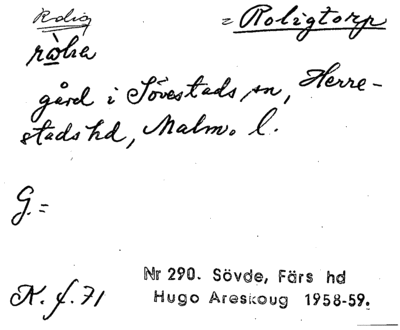 Rolig = Roligtorp
gård i Sövestads sn, Herre-
stads hd, Malm. l.
G. =
K. f. 71
Nr 290. Sövde, Färs hd
Hugo Areskoug 1958-59.